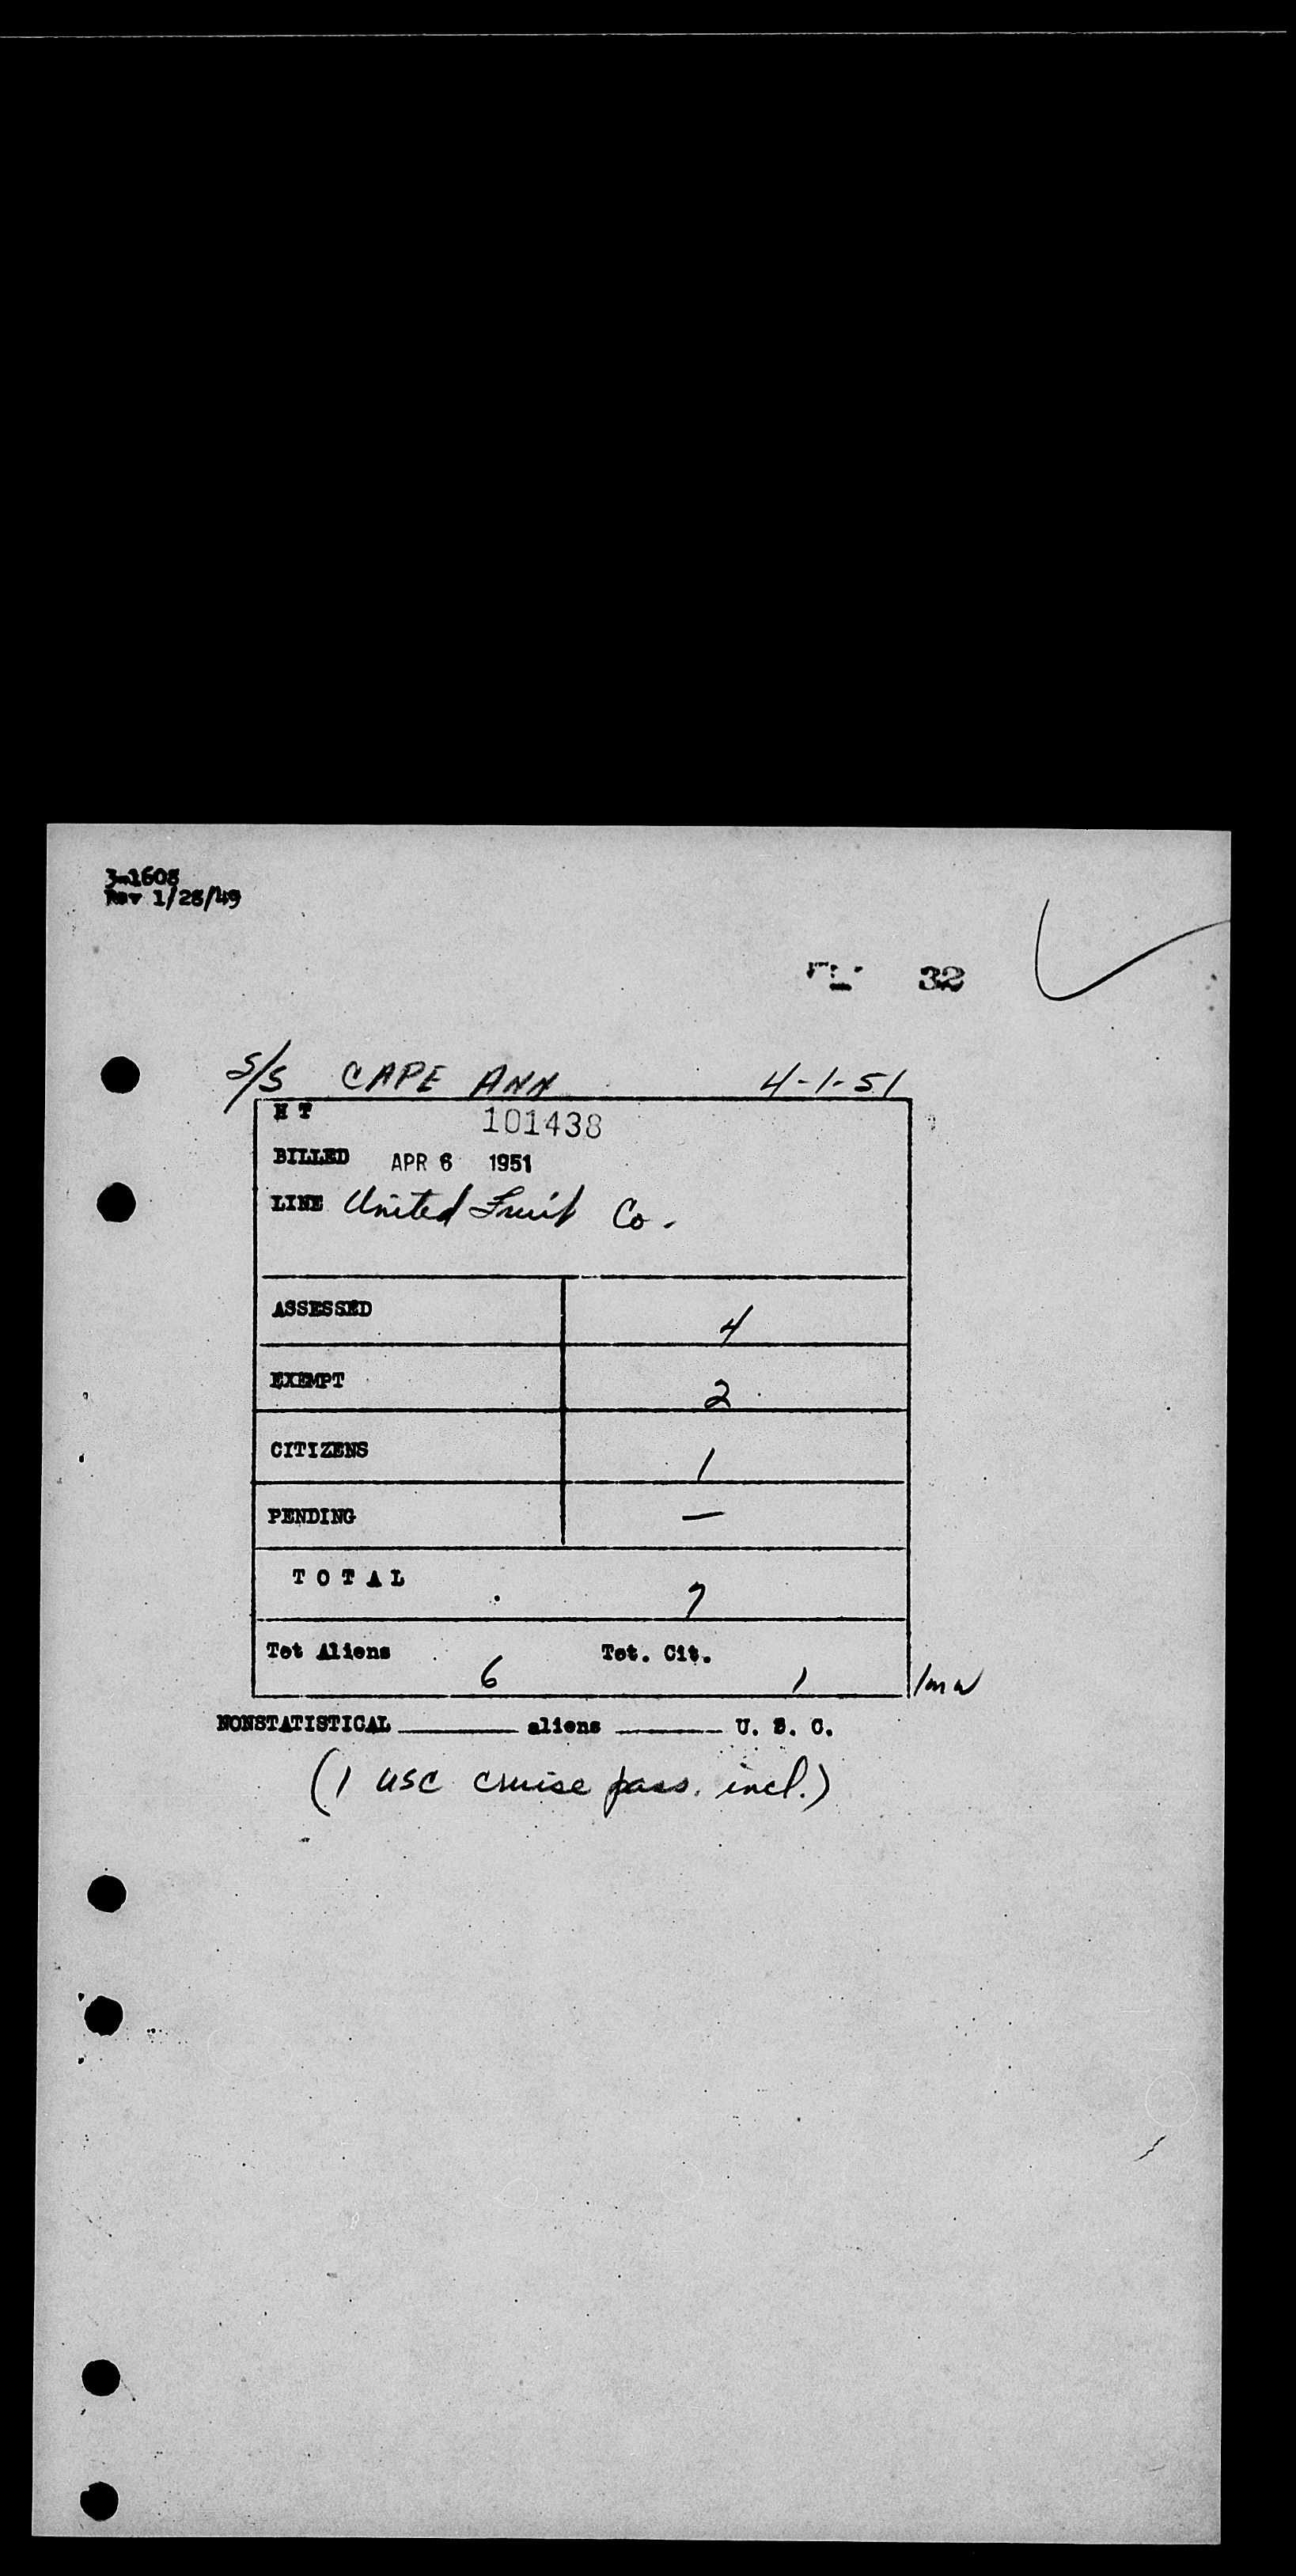 3-1608
Rev 1/28/49
32
S/S CAPE ANN 4-1-51
H T 101438
BILLED APR 6 1951
LINE United Fruit Co.
ASSESSED 4
EXEMPT 2
CITIZENS 1
PENDING —
TOTAL 7
Tot Aliens 6 Tot. Cit. 1
NONSTATISTICAL ______ aliens ______ U. S. C.
(1 USC cruise pass. incl.)